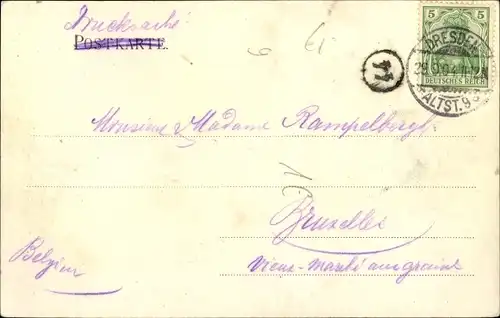 Drucksache
POSTKARTE.
5 5
DEUTSCHES REICH
DRESDEN
ALTST. 9
11
Monsieur & Madame Rampelbergh
Bruxelles
Belgien
Vieux-Marché aux grains